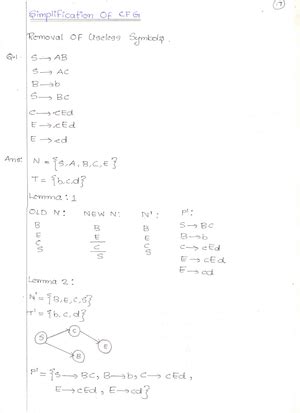 Simplification Of CFG
Removal Of Useless Symbols.
Q:-1 S→AB
S→AC
B→b
S→BC
C→cEd
E→cEd
E→cd
Ans: N = {S,A,B,C,E}
T = {b,c,d}
Lemma:1
OLD N: NEW N: N': P':
B B B S→BC
E E E B→b
C C C C→cEd
S S S E→cEd
E→cd
Lemma 2:
N'={B,E,C,S}
T'={b,c,d}
S C E
B
P'={S→BC, B→b, C→cEd,
E→cEd, E→cd}